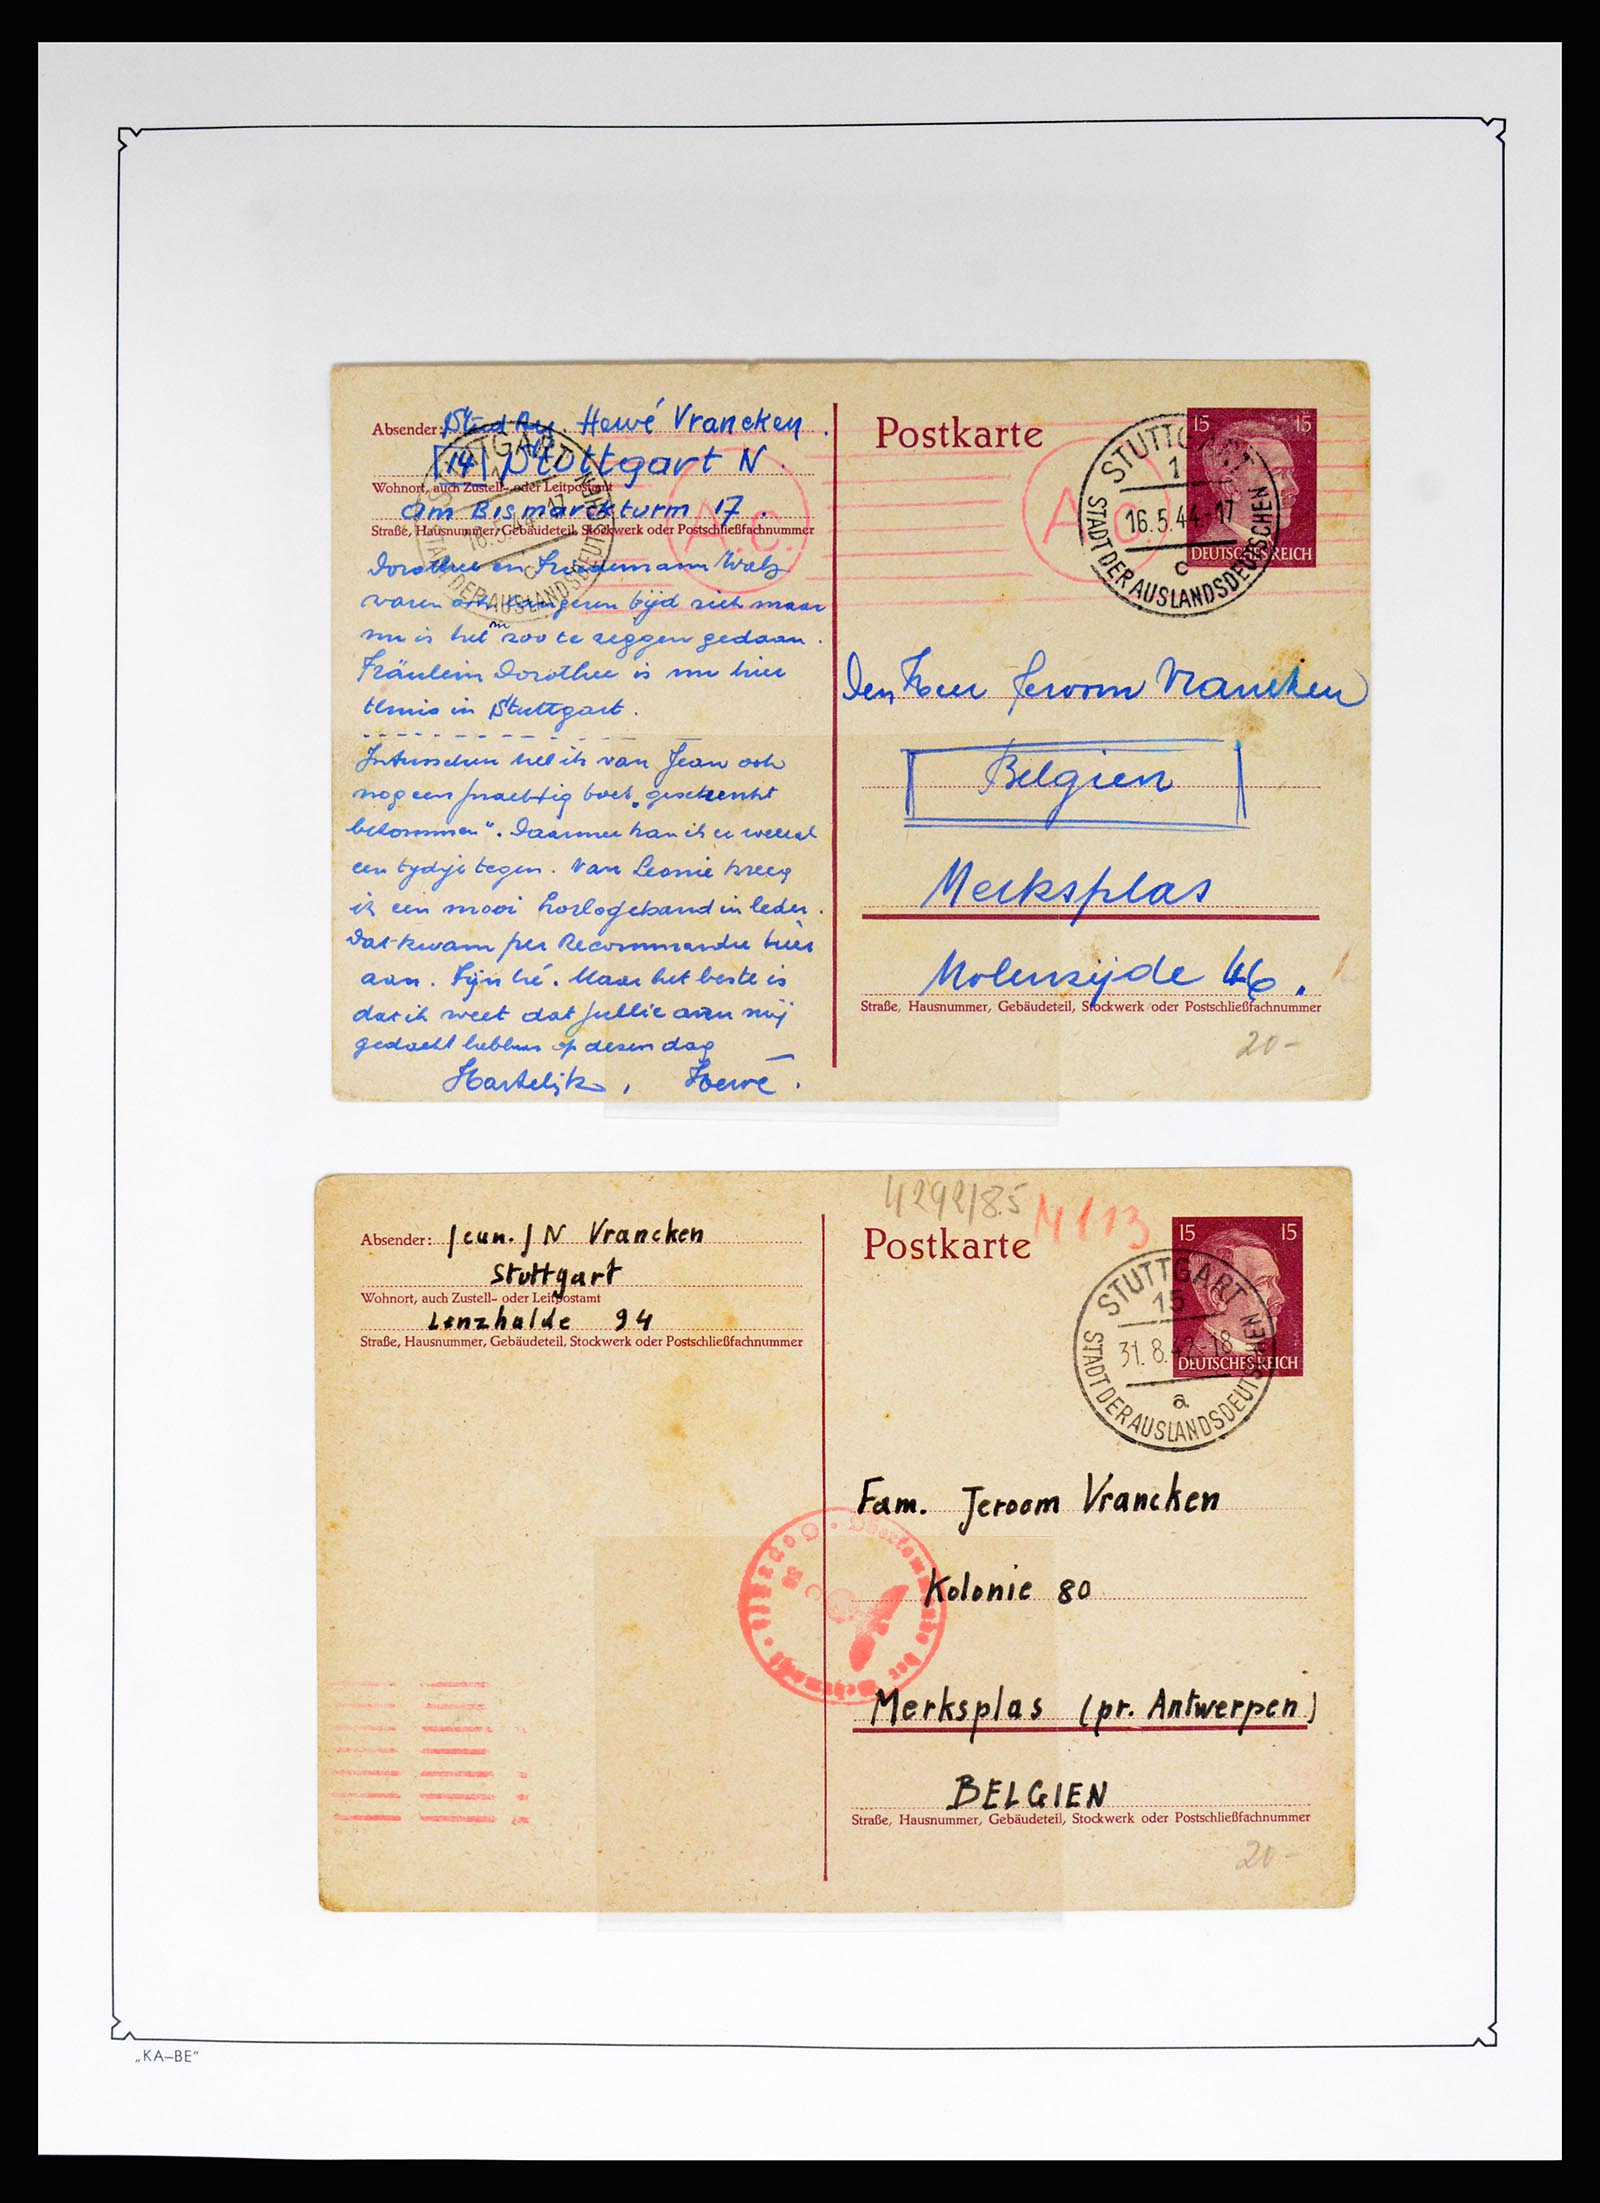 Absender: Stud. Hervé Vrancken.
[14] Stuttgart N.
Wohnort, auch Zustell- oder Leitpostamt
am Bismarckturm 17.
Straße, Hausnummer, Gebäudeteil, Stockwerk oder Postschließfachnummer
Dorothee en Friedemann Walz
waren bijd ziek maar
nu is het zoo te zeggen gedaan.
Fräulein Dorothee is nu hier
thuis in Stuttgart.
Intusschen heb ik van Jean ook
nog een prachtig boek „geschenkt
bekommen". Daarmee kan ik er weeral
een tydje tegen. Van Leonie kreeg
ik een mooi horlogeband in leder.
Dat kwam per Recommandee hier
aan. Fijn hé. Maar het beste is
dat ik weet dat jullie aan mij
gedacht hebben op dezen dag
Hartelijk, Hervé.
STUTTGART
1
16.5.44.-17
c
STADT DER AUSLANDSDEUTSCHEN
A.c.
Postkarte
A.c.
STUTTGART
1
16.5.44.-17
c
STADT DER AUSLANDSDEUTSCHEN
15 15
DEUTSCHES REICH
Den Heer Jeroom Vrancken
Belgien
Merksplas
Molenzijde 46.
Straße, Hausnummer, Gebäudeteil, Stockwerk oder Postschließfachnummer
20-
Absender: / cun. / N Vrancken
Stuttgart
Wohnort, auch Zustell- oder Leitpostamt
Lenzhalde 94
Straße, Hausnummer, Gebäudeteil, Stockwerk oder Postschließfachnummer
4292/85
Postkarte
15 15
DEUTSCHES REICH
STUTTGART
15
31.8.42.-18
a
STADT DER AUSLANDSDEUTSCHEN
Fam. Jeroom Vrancken
Kolonie 80
Merksplas (pr. Antwerpen)
BELGIEN
Straße, Hausnummer, Gebäudeteil, Stockwerk oder Postschließfachnummer
20-
Oberkommando der Wehrmacht
„KA–BE"